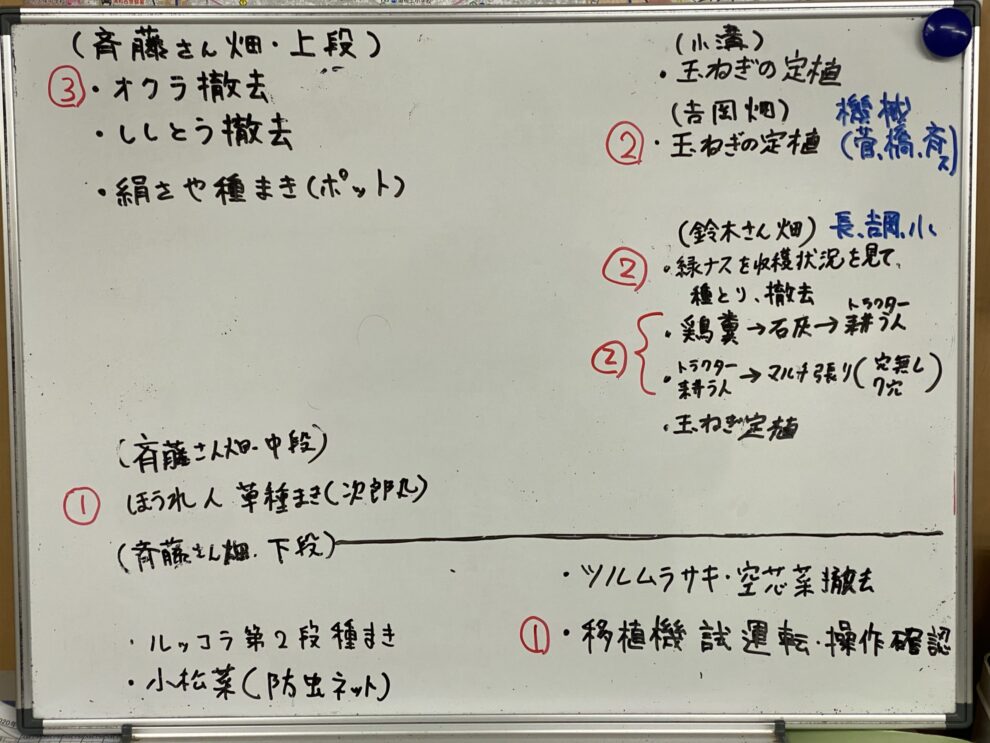 (斉藤さん畑・上段)
③・オクラ撤去
・ししとう撤去
・絹さや種まき(ポット)
(小溝)
・玉ねぎの定植
(吉岡畑) 機械
②・玉ねぎの定植 (菅、橋、斉ス)
(鈴木さん畑) 長、吉岡、小、
②・緑ナスを収穫状況を見て、
種とり、撤去
②・鶏糞→石灰→トラクター耕うん
・トラクター耕うん→マルチ張り(穴無し 7穴)
・玉ねぎ定植
(斉藤さん畑・中段)
① ほうれん草種まき(次郎丸)
(斉藤さん畑・下段)
・ルッコラ第2段種まき
・小松菜(防虫ネット)
・ツルムラサキ・空芯菜撤去
①・移植機試運転・操作確認